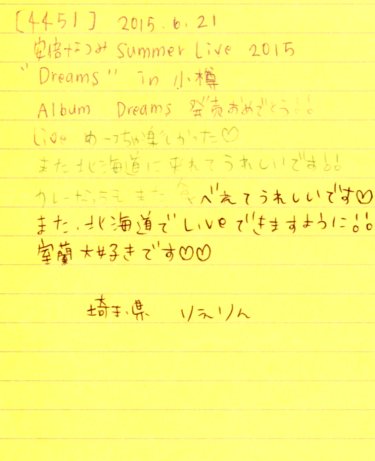 [4451] 2015.6.21
安倍なつみ Summer Live 2015
"Dreams" in 小樽
Album Dreams 発売おめでとう!!
Live めーっちゃ楽しかった♡
また北海道に来れてうれしいです!!
カレーだ また食べえてうれしいです♡
また、北海道でLiveできますように!!
室蘭大好きです♡♡
埼玉県 りえりん